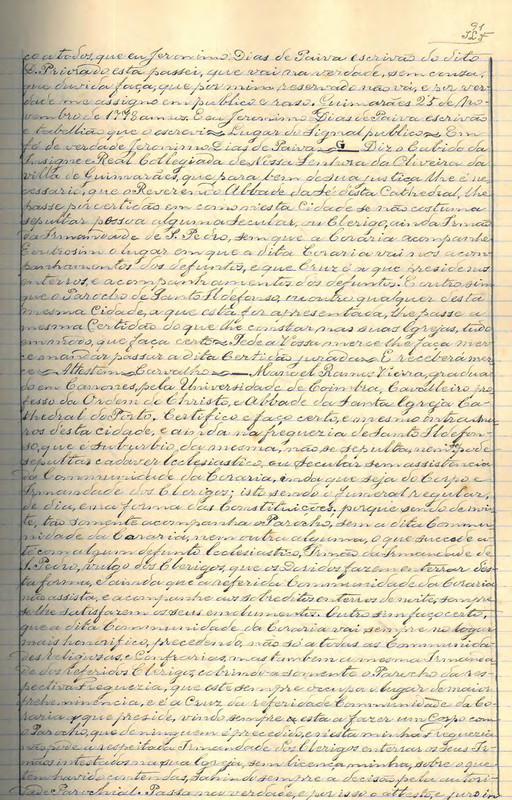 91
ço a todos, que eu Jeronimo Dias de Paiva escrivão do dito
D. Priorado esta passei, que vai na verdade, sem cousa,
que duvida faça, que por mim reservado não vai, e por ver-
dade me assigno em publico e raso. Guimarães 25 de No-
vembro de 1778 annos. E eu Jeronimo Dias de Paiva escrivão
e tabellião que o escrevi ~ Lugar do signal publico ~ Em
fé de verdade Jeronimo Dias de Paiva ~ G ~ Diz o Cabido da
Insigne e Real Collegiada de Nossa Senhora da Oliveira da
villa de Guimarães, que para bem de sua justiça lhe é ne-
cessario, que o Reverendo Abbade da Sé d'esta Cathedral, lhe
passe por certidão em como n'esta Cidade se não costuma
sepultar pessoa alguma secular, ou Clerigo, ainda Irmão
da Irmandade de S. Pedro, sem que a Coraria acompanhe
E outrosim o lugar em que a dita Coraria vai nos acom-
panhamentos dos defuntos, e que Cruz é a que preside nos
enterros, e acompanhamentos dos defuntos. E outro sim
que o Parocho de Santo Ildefonso, ou outro qualquer desta
mesma Cidade, a que esta for apresentada, lhe passe a
mesma Certidão do que lhe constar nas suas Igrejas, tudo
em modo, que faça certo ~ Pede a Vossa merce lhe faça mer-
ce mandar passar a dita Certidão jurada ~ E receberá mer-
ce ~ Attestem ~ Carvalho ~ Manoel Ramos Vieira, gradua-
do em Canones, pela Universidade de Coimbra, Cavalleiro pro-
fesso da Ordem de Christo, e Abbade da Santa Igreja Ca-
thedral do Porto, Certifico e faço certo, e mesmo intra mu-
ros desta Cidade, e ainda na freguezia de Santo Ildefon-
so, que é suburbio da mesma, não se sepulta, nem póde
sepultar cadaver Ecclesiastico, ou Secular sem assistencia
da Communidade da Coraria, inda que seja do Corpo e
Irmandade dos Clerigos; isto sendo o funeral regular,
de dia, e na forma das Constituições, porque sendo de noi-
te, tão somente acompanha o Parocho, sem a dita Commu-
nidade da Coraria, nem outra alguma, o que succede a-
té com algum defunto Ecclesiastico, Irmão da Irmandade de
S. Pedro, vulgo dos Clerigos, que os Devidos fazem enterrar des-
ta forma, e ainda que a referida Communidade da Coraria
não assista, e acompanhe aos sobreditos enterros de noite, sempre
se lhe satisfazem os seus emolumentos. Outro sim faço certo,
que a dita Communidade da Coraria vai sempre no logar
mais honorifico, precedendo, não só a todas as Communida-
des Religiosas, e Confrarias, mas tambem a mesma Irmanda-
de dos referidos Clerigos, cobrindo-a somente o Parocho da res-
pectiva Freguezia, que este sempre occupa o lugar de maior
prehe minencia, e é a Cruz da referida Communidade da Co-
raria a que preside, vindo sempre esta a fazer um Corpo com
o Parocho, que de ninguem é precedido, e n'esta minha Freguezia
não póde a respeitada Irmandade dos Clerigos enterrar os seus Ir-
mãos intestados na sua Igreja, sem licença minha, sobre o que
tem havido contendas, sahindo sempre a decisão pela autori-
dade Parochial. Passa na verdade, e por isso o attesto, e juro in